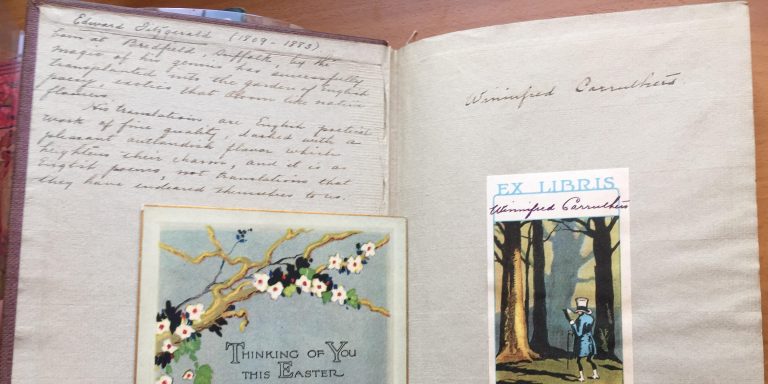 Edward Fitzgerald (1809 - 1883)
born at Bredfield, Suffolk, by the
magic of his genius has successfully
transplanted into the garden of English
poesy, exotics that bloom like native
flowers.
His translations are English poetical
work of fine quality, dashed with a
pleasant outlandish flavor which
heightens their charm, and it is as
English poems, not translations that
they have endeared themselves to us.
THINKING OF YOU
THIS EASTER
Winnifred Carruthers.
EX LIBRIS
Winnifred Carruthers